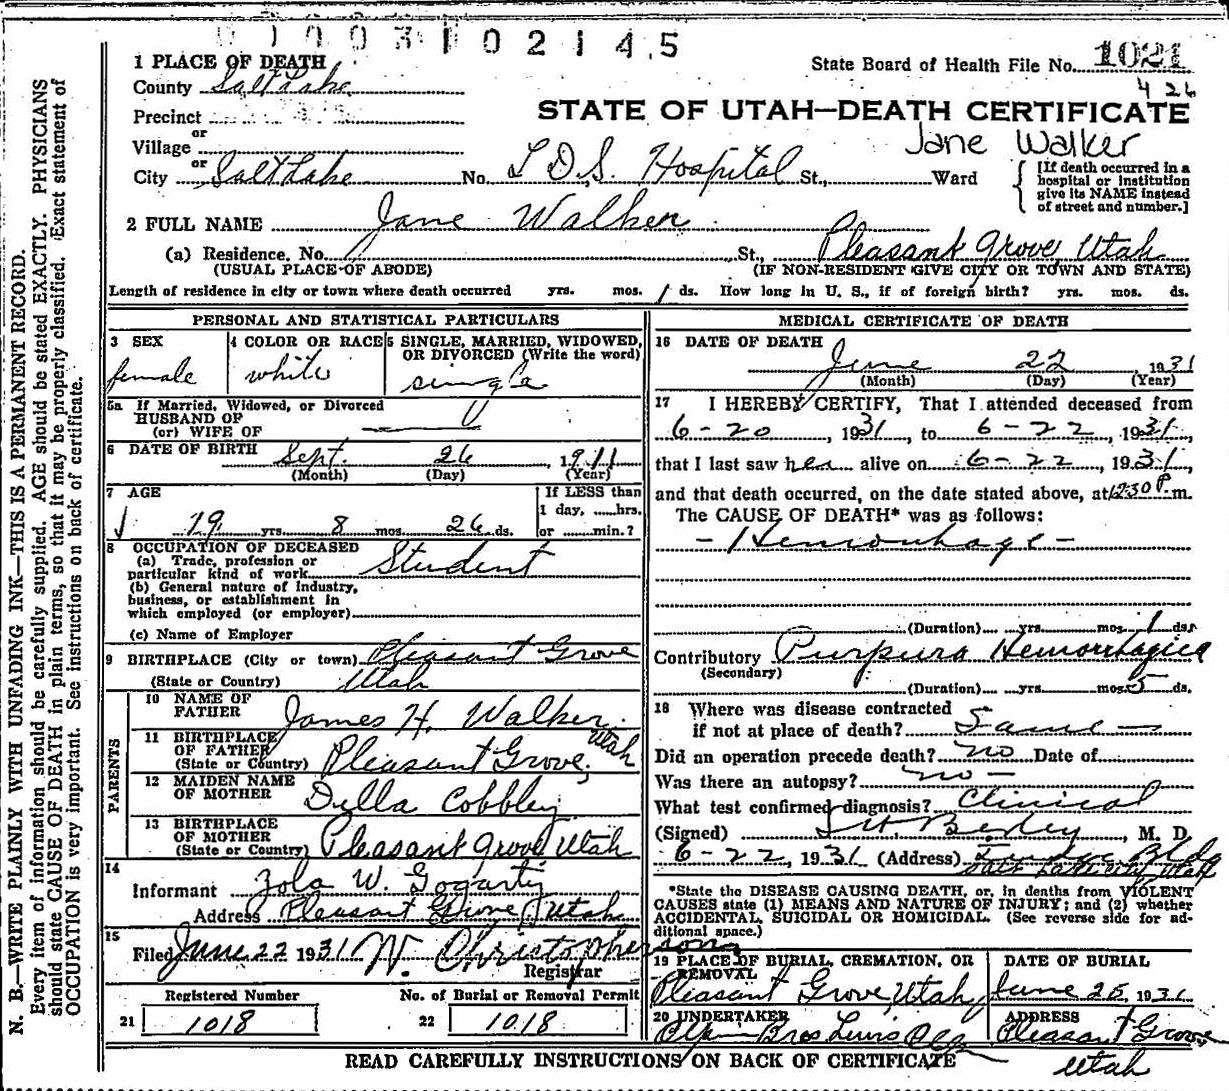 3 1 0 2 1 4 5
1 PLACE OF DEATH
State Board of Health File No. 1021
County Salt Lake
426
Precinct
STATE OF UTAH—DEATH CERTIFICATE
or
Village
Jane Walker
or
City Salt Lake No. L D. S. Hospital St., Ward
[If death occurred in a hospital or institution give its NAME instead of street and number.]
2 FULL NAME Jane Walker
(a) Residence. No. St., Pleasant Grove, Utah
(USUAL PLACE OF ABODE) (IF NON-RESIDENT GIVE CITY OR TOWN AND STATE)
Length of residence in city or town where death occurred yrs. mos. 1 ds. How long in U. S., if of foreign birth? yrs. mos. ds.
PERSONAL AND STATISTICAL PARTICULARS
3 SEX
female
4 COLOR OR RACE
white
5 SINGLE, MARRIED, WIDOWED, OR DIVORCED (Write the word)
single
5a If Married, Widowed, or Divorced
HUSBAND OF
(or) WIFE OF
6 DATE OF BIRTH Sept. 26, 1911
(Month) (Day) (Year)
7 AGE
19 yrs. 8 mos. 26 ds.
If LESS than
1 day, ......hrs.
or ......min.?
8 OCCUPATION OF DECEASED
(a) Trade, profession or
particular kind of work Student
(b) General nature of industry,
business, or establishment in
which employed (or employer)
(c) Name of Employer
9 BIRTHPLACE (City or town) Pleasant Grove
(State or Country) Utah
PARENTS
10 NAME OF
FATHER James H. Walker
11 BIRTHPLACE
OF FATHER
(State or Country) Pleasant Grove, Utah
12 MAIDEN NAME
OF MOTHER Della Cobbley
13 BIRTHPLACE
OF MOTHER
(State or Country) Pleasant Grove Utah
14
Informant Zola W. Gogarty
Address Pleasant Grove, Utah
15
Filed June 22 1931 W. Christopherson
Registrar
Registered Number
21 1018
No. of Burial or Removal Permit
22 1018
MEDICAL CERTIFICATE OF DEATH
16 DATE OF DEATH
June 22 1931
(Month) (Day) (Year)
17 I HEREBY CERTIFY, That I attended deceased from
6-20, 1931, to 6-22, 1931,
that I last saw her alive on 6-22, 1931,
and that death occurred, on the date stated above, at 12:30 P. m.
The CAUSE OF DEATH* was as follows:
- Hemorrhage -
(Duration) yrs. mos. 1 ds.
Contributory Purpura Hemorrhagica
(Secondary)
(Duration) yrs. mos. 5 ds.
18 Where was disease contracted
if not at place of death? Same
Did an operation precede death? no Date of
Was there an autopsy? no -
What test confirmed diagnosis? Clinical
(Signed) M. D.
6-22, 1931 (Address) Bldg
Salt Lake City, Utah
*State the DISEASE CAUSING DEATH, or, in deaths from VIOLENT
CAUSES state (1) MEANS AND NATURE OF INJURY; and (2) whether
ACCIDENTAL, SUICIDAL OR HOMICIDAL. (See reverse side for additional space.)
19 PLACE OF BURIAL, CREMATION, OR
REMOVAL
Pleasant Grove, Utah
DATE OF BURIAL
June 25, 1931
20 UNDERTAKER
Olpin Bros
ADDRESS
Pleasant Grove
Utah
READ CAREFULLY INSTRUCTIONS ON BACK OF CERTIFICATE
N. B.—WRITE PLAINLY WITH UNFADING INK—THIS IS A PERMANENT RECORD.
Every item of information should be carefully supplied. AGE should be stated EXACTLY. PHYSICIANS
should state CAUSE OF DEATH in plain terms, so that it may be properly classified. Exact statement of
OCCUPATION is very important. See instructions on back of certificate.